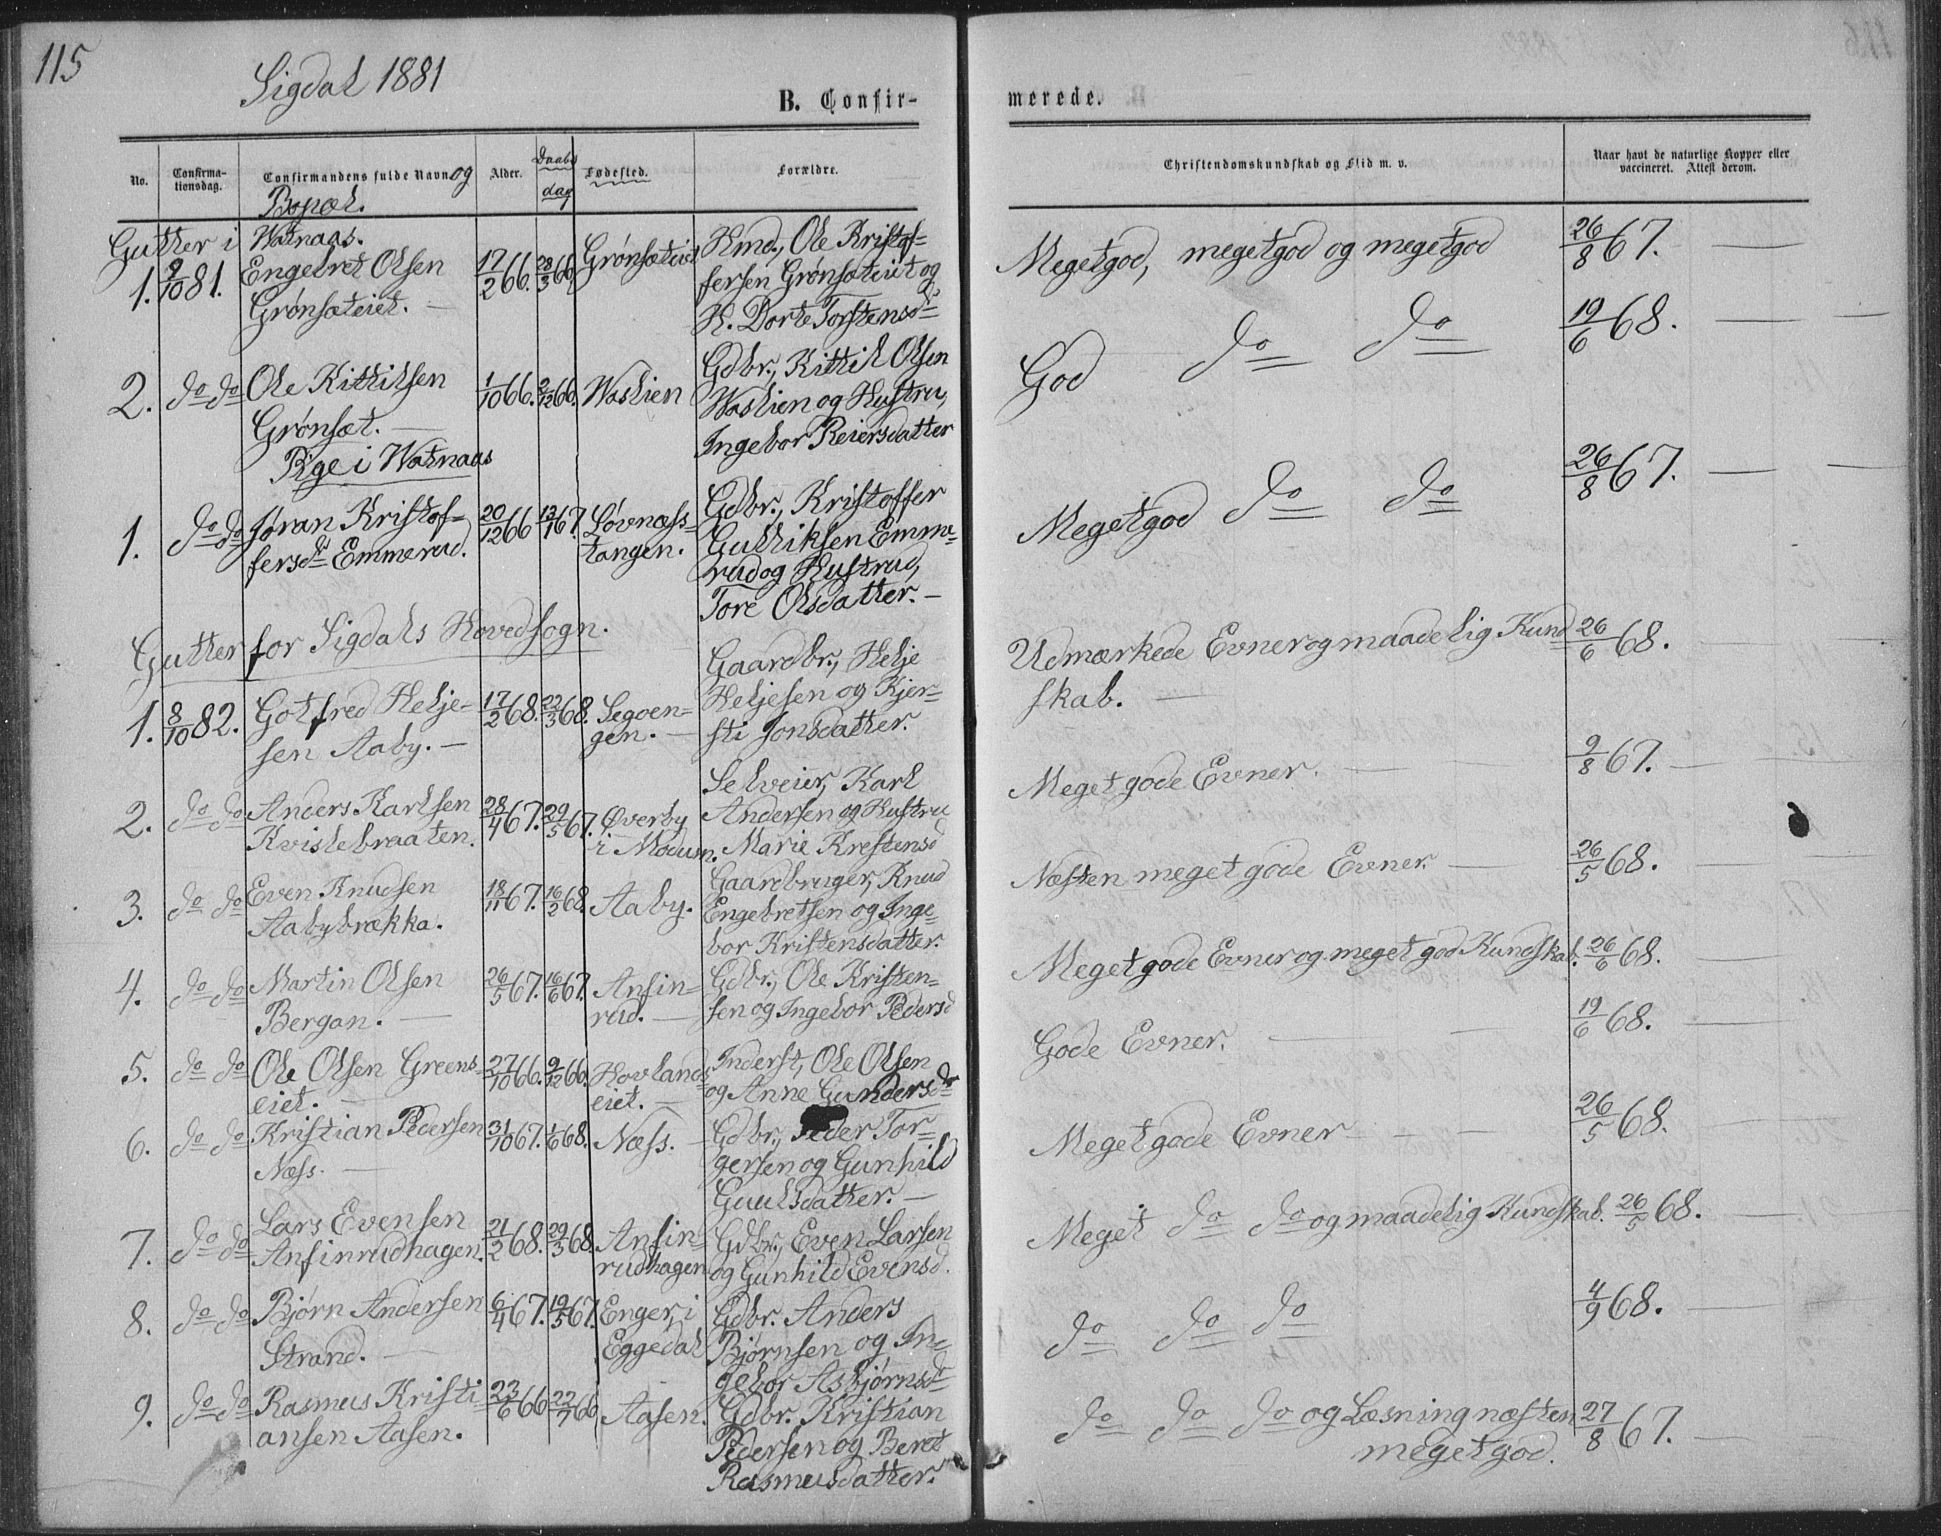 115
Sigdal 1881
B. Confir-
merede.
No.
Confirma-
tionsdag.
Confirmandens fulde Navn og
Bopæl.
Alder.
Daabs
dag
Fødested.
Forældre.
Christendomskundskab og Flid m. v.
Naar havt de naturlige Kopper eller
vaccineret. Attest derom.
Gutter i Vatnaas.
1. 9/10 81. Engebret Olsen
Grønsæteiet. —
17/2 66. 28/3 66. Grønsæteiet
Hmd., Ole Kristof-
fersen Grønsæteiet og
H. Dorte Torstensd.
Megetgod, megetgod og megetgod 26/8 67. —
2. do do Ole Kittilsen
Grønsæt. —
1/10 66. 2/12 66. Vaslien
Gdbr., Kittil Olsen
Vaslien og Hustru,
Ingebor Reiersdatter
God do do 19/6 68. —
Pige i Vatnaas
1. do do Jøran Kristof-
fersd. Emmerud.
20/12 66 13/1 67. Løvnæss-
tangen.
Gdbr., Kristoffer
Gulliksen Emme-
rud og Hustrud,
Tore Olsdatter. —
Megetgod do do 26/8 67. —
Gutter for Sigdals Hovedsogn.
1. 8/10 82. Gotfred Helje-
sen Aaby. —
17/2 68. 22/3 68. Segoen-
gen. —
Gaardbr., Helje
Heljesen og Kjer-
sti Jonsdatter.
Udmærkede Evner og maadelig Kund- 26/6 68. —
skab. —
2. do do Anders Karlsen
Kvislebraaten.
28/4 67. 29/5 67. Øverby
i Modum.
Selveier, Karl
Andersen og Hustru
Marie Krestensd
Meget gode Evner. — 9/8 67. —
3. do do Even Knudsen
Aabybrækka.
18/11 67. 16/2 68. Aaby.
Gaardbruger, Knud
Engebretsen og Inge-
bor Kristensdatter.
Næsten meget gode Evner. — 26/5 68. —
4. do do Martin Olsen
Bergan. —
26/5 67. 16/6 67. Anfin-
rud. —
Gdbr., Ole Kristen-
sen og Ingebor Pedersd
Meget gode Evner og meget god Kundskab. 26/6 68. —
5. do do Ole Olsen Greens-
eiet. —
27/10 66. 9/12 66. Hovlands-
eiet. —
Inderst, Ole Olsen
og Anne Gundersdr
Gode Evner. — 19/6 68. —
6. do do Kristian Pedersen
Næss. —
31/10 67. 1/6 68. Næss. —
Gdbr., Peder Tor-
gersen og Gunhild
Guulsdatter. —
Meget gode Evner — — 26/5 68. —
7. do do Lars Evensen
Anfinrudhagen.
21/2 68. 29/3 68. Anfin-
rudhagen
Gdbr., Even Larsen
og Gunhild Evensd.
Meget do do og maadelig Kundskab. 26/5 68. —
8. do do Bjørn Andersen
Strand. —
6/4 67. 19/5 67. Enger, i
Eggedal
Gdbr. Anders
Bjørnsen og In-
gebor Asbjørnsd
do do do 4/9 68. —
9. do do Rasmus Kristi-
ansen Aasen.
23/6 66 22/7 66 Aasen.
Gdbr. Kristian
Pedersen og Beret
Rasmusdatter.
do do do og Læsning næsten 27/8 67. —
megetgod.